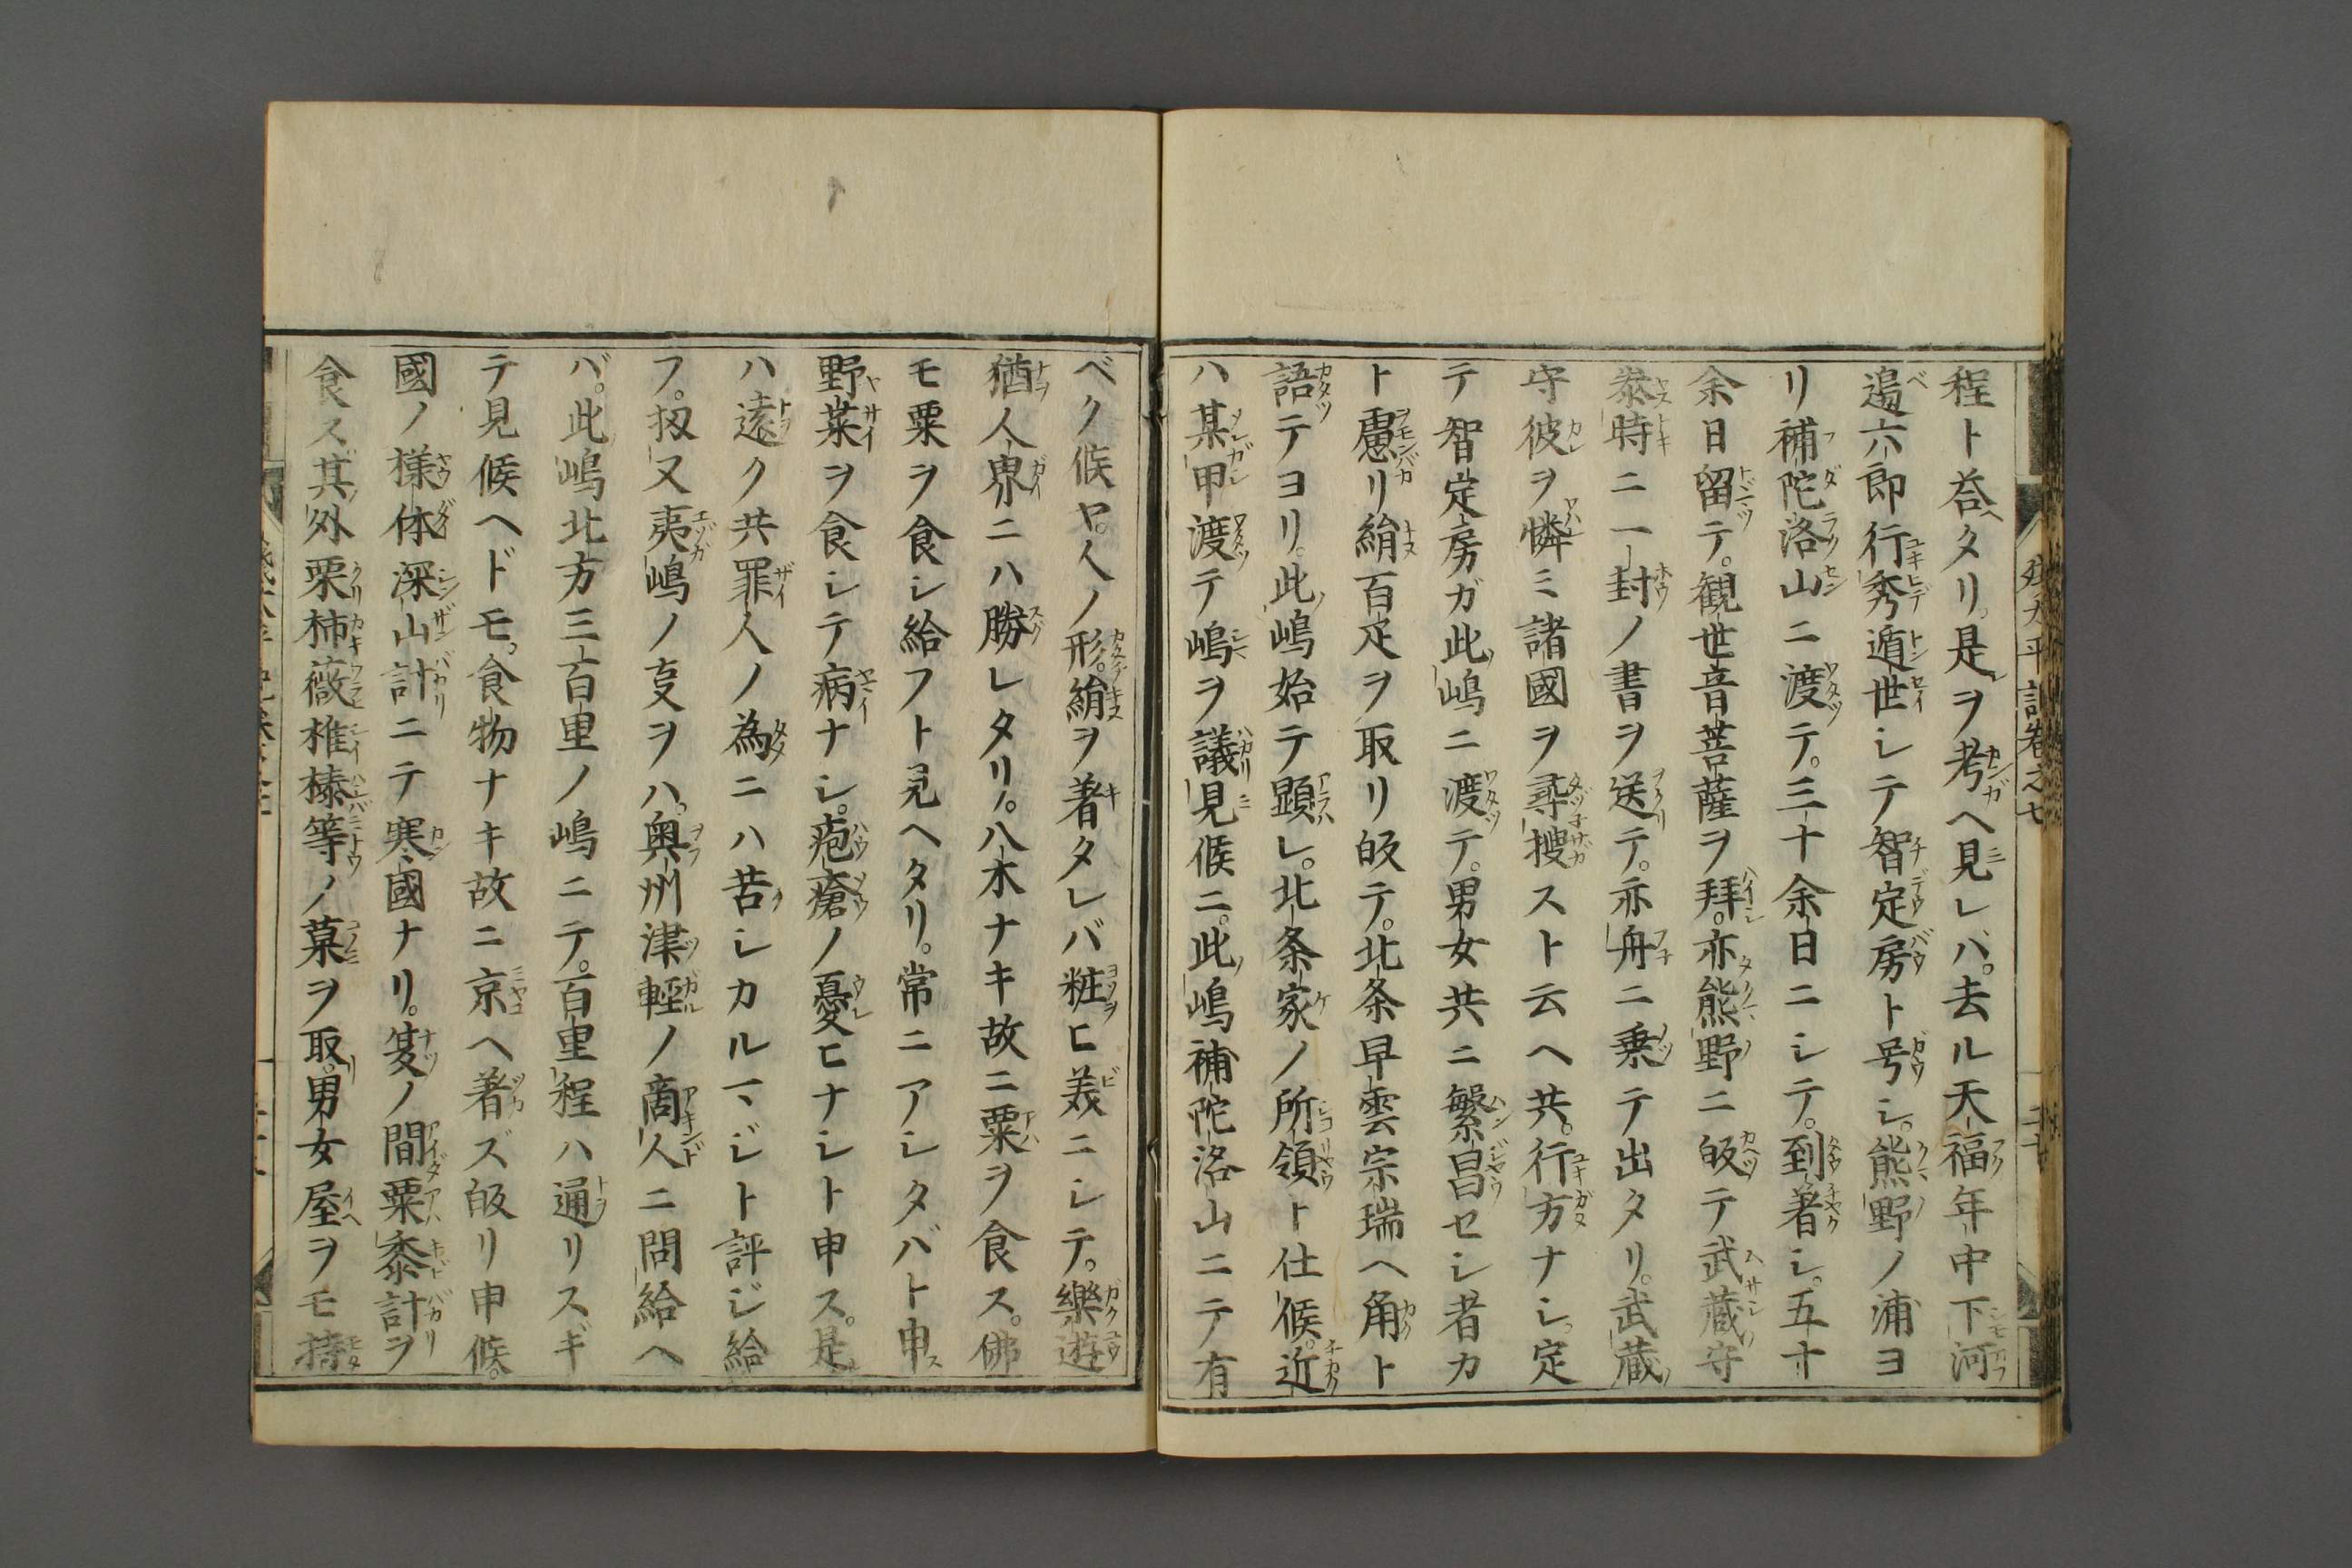 程ト荅タリ。是ヲ考ヘ見レバ。去ル天福年中下河
邉六郎行秀遁世シテ智定房ト号シ。熊野ノ浦ヨ
リ補陀洛山ニ渡テ。三十余日ニシテ。到著シ。五十
余日留テ。観世音菩薩ヲ拜。亦熊野ニ皈テ武蔵守
泰時ニ一封ノ書ヲ送テ。亦舟ニ乗テ出タリ。武蔵
守彼ヲ憐ミ諸國ヲ尋搜スト云ヘ共。行方ナシ。定
テ智定房ガ此嶋ニ渡テ。男女共ニ繁昌セシ者カ
ト慮リ絹百疋ヲ取リ皈テ。北条早雲宗瑞ヘ角ト
語テヨリ。此嶋始テ顕レ。北条家ノ所領ト仕候。近
ハ某甲渡テ嶋ヲ議見候ニ。此嶋補陀洛山ニテ有
ベク候ヤ。人ノ形。絹ヲ著タレバ粧ヒ美ニシテ。樂遊
猶人界ニハ勝レタリ。八木ナキ故ニ粟ヲ食ス。佛
モ粟ヲ食シ給フト見ヘタリ。常ニアシタバト申
野菜ヲ食シテ病ナシ。疱瘡ノ憂ヒナシト申ス。是
ハ遠ク共罪人ノ為ニハ苦シカルマジト評ジ給
フ。扨又夷嶋ノ叓ヲハ。奥州津軽ノ商人ニ問給ヘ
バ。此嶋北方三百里ノ嶋ニテ。百里程ハ通リスギ
テ見候ヘドモ。食物ナキ故ニ京ヘ著ズ皈リ申候。
國ノ様体深山計ニテ寒國ナリ。夏ノ間粟黍計ヲ
食ス其外栗柿薇椎榛等ノ菓ヲ取。男女屋ヲモ持
太平記巻之七